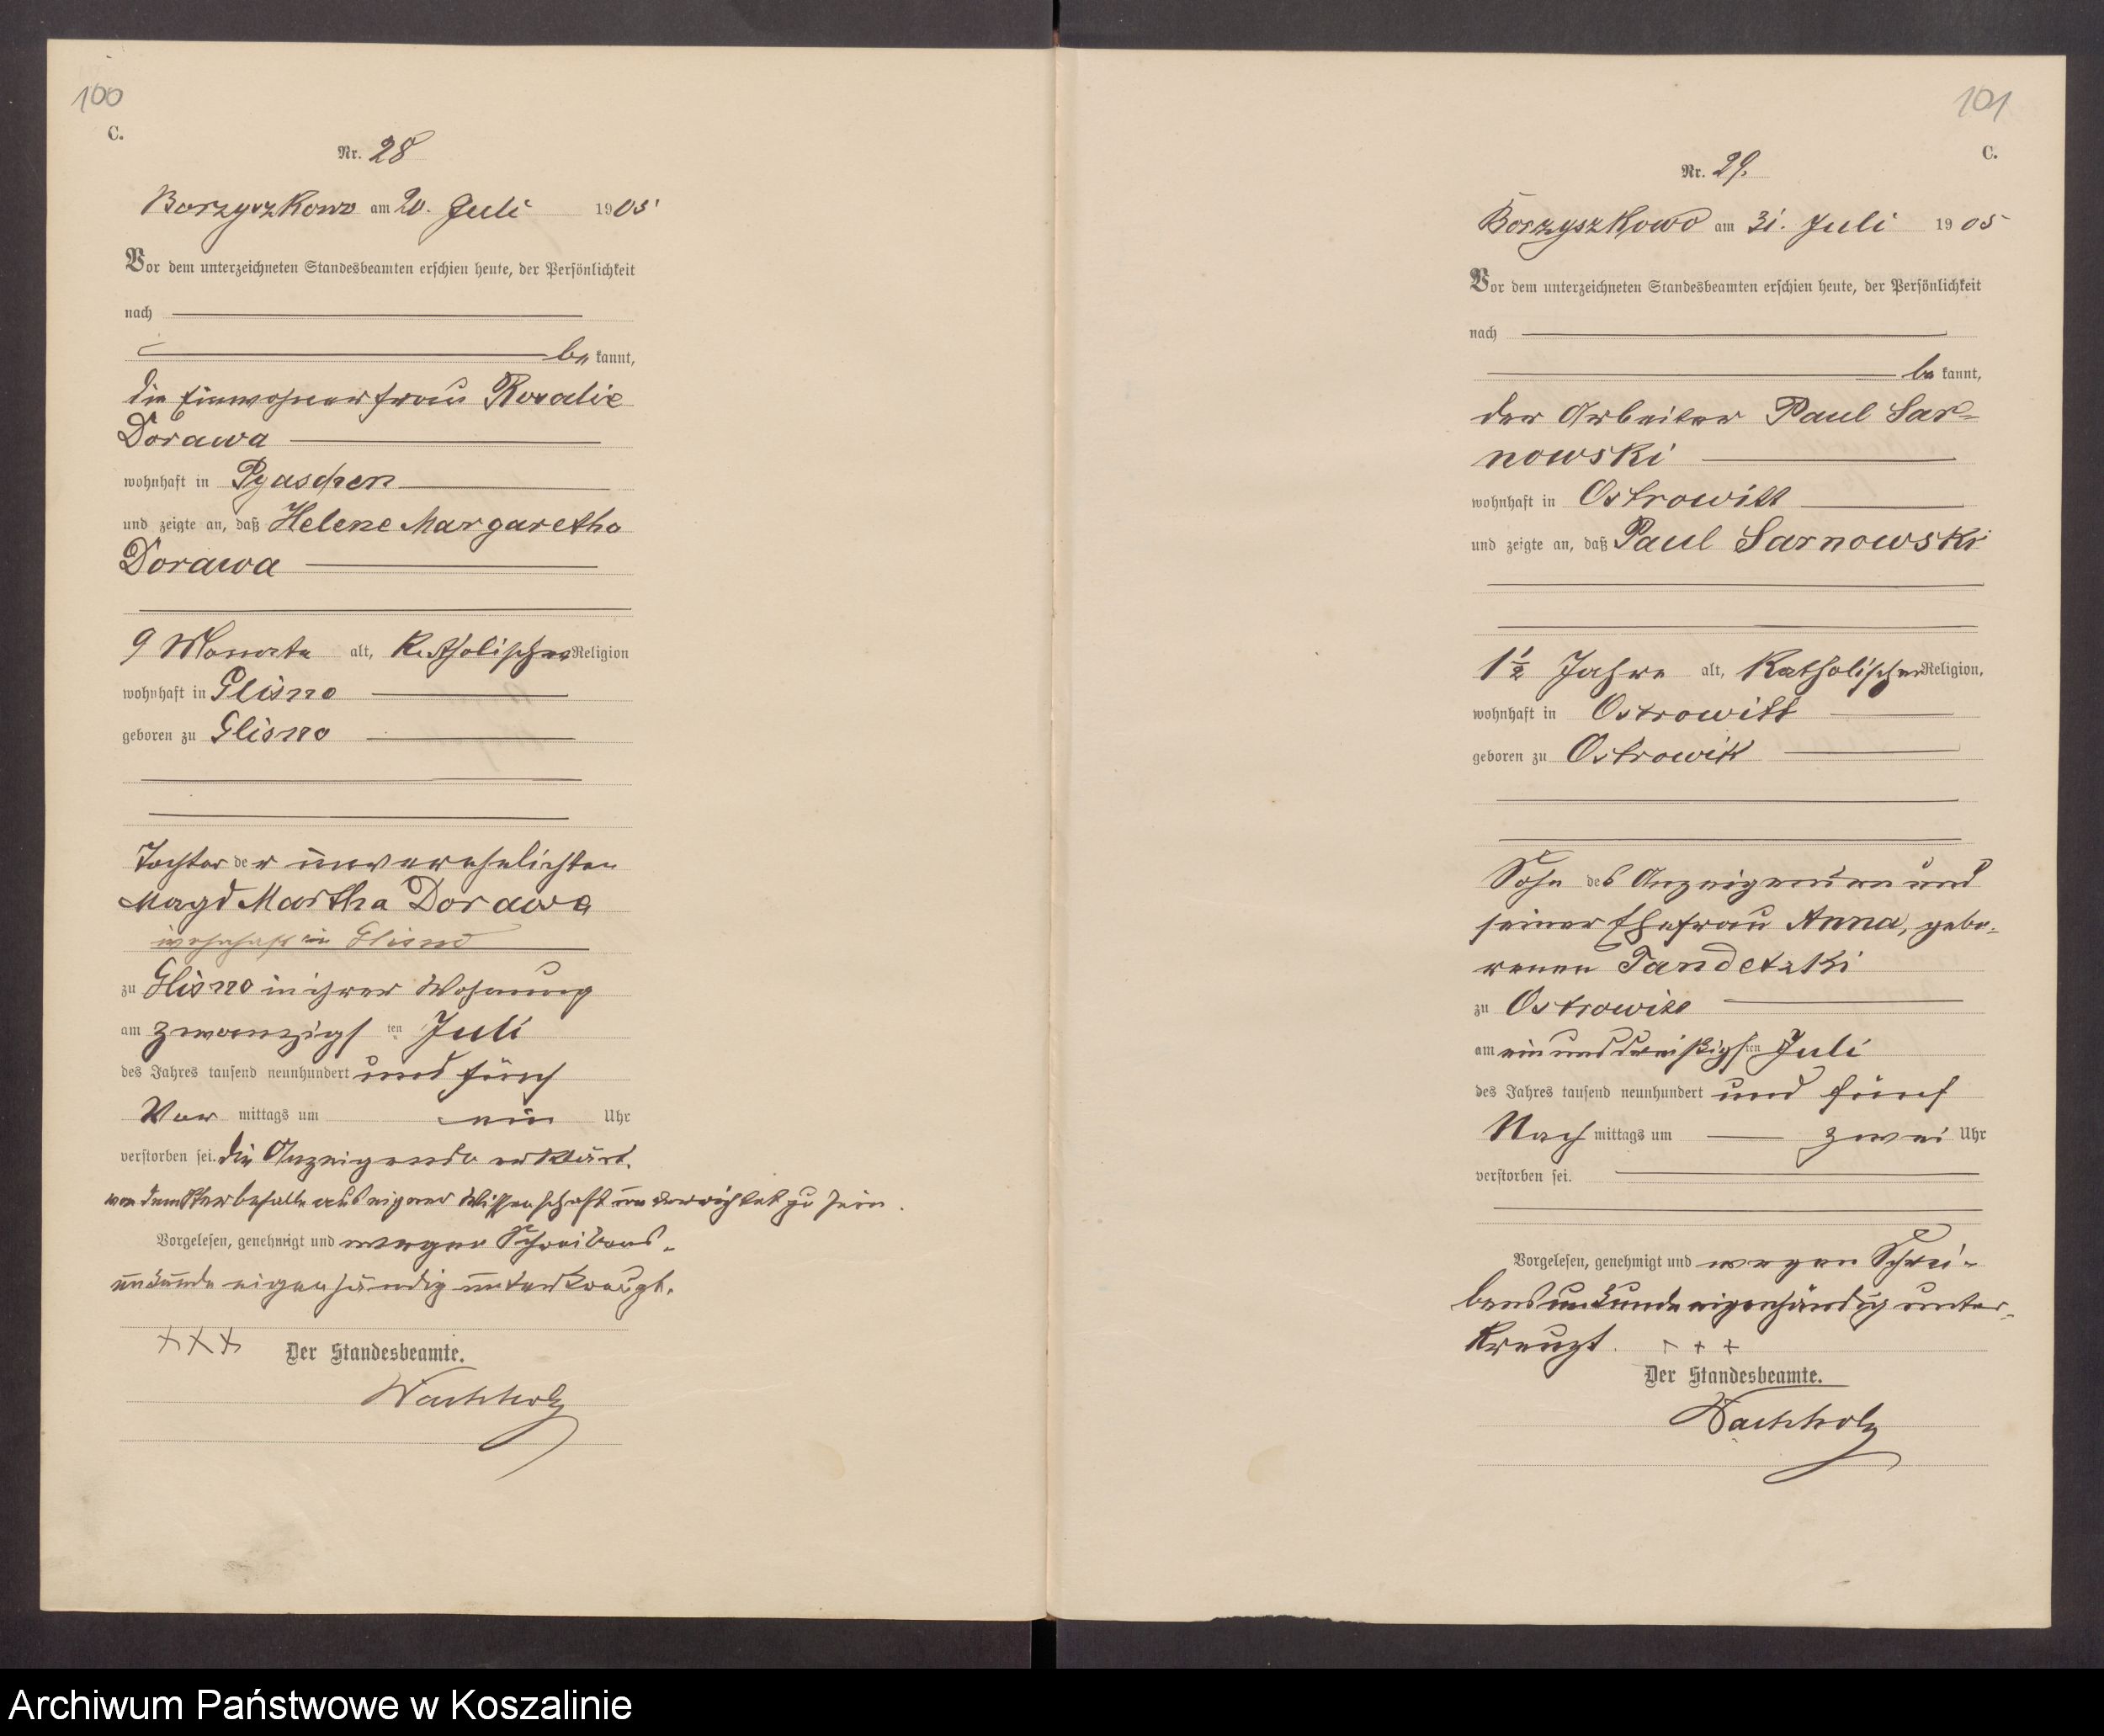 100
C.
Nr. 28
Borzyszkowo am 20. Juli 1905
Vor dem unterzeichneten Standesbeamten erschien heute, der Persönlichkeit
nach
be kannt,
die Einwohnerfrau Rosalie
Dorawa
wohnhaft in Pyaschen
und zeigte an, daß Helene Margaretha
Dorawa
9 Monate alt, katholischer Religion
wohnhaft in Glisno
geboren zu Glisno
Tochter der unverehelichten
Magd Martha Dorawa
wohnhaft in Glisno
zu Glisno in ihrer Wohnung
am zwanzigsten Juli
des Jahres tausend neunhundert und fünf
Vor mittags um ein Uhr
verstorben sei. die Anzeigende erklärt,
von dem Sterbefalle aus eigener Wissenschaft unterrichtet zu sein.
Vorgelesen, genehmigt und wegen Schreibens-
unkunde eigenhändig unterkreuzt.
+++
Der Standesbeamte.
Wachholz
101
C.
Nr. 29.
Borzyszkowo am 31. Juli 1905
Vor dem unterzeichneten Standesbeamten erschien heute, der Persönlichkeit
nach
be kannt,
der Arbeiter Paul Sar-
nowski
wohnhaft in Ostrowitt
und zeigte an, daß Paul Sarnowski
1½ Jahre alt, katholischer Religion,
wohnhaft in Ostrowitt
geboren zu Ostrowitt
Sohn des Anzeigenden und
seiner Ehefrau Anna, gebo-
renen Tandetzki
zu Ostrowitt
am einunddreißigsten Juli
des Jahres tausend neunhundert und fünf
Nach mittags um zwei Uhr
verstorben sei.
Vorgelesen, genehmigt und wegen Schrei-
bensunkunde eigenhändig unter-
kreuzt. + + +
Der Standesbeamte.
Wachholz
Archiwum Państwowe w Koszalinie